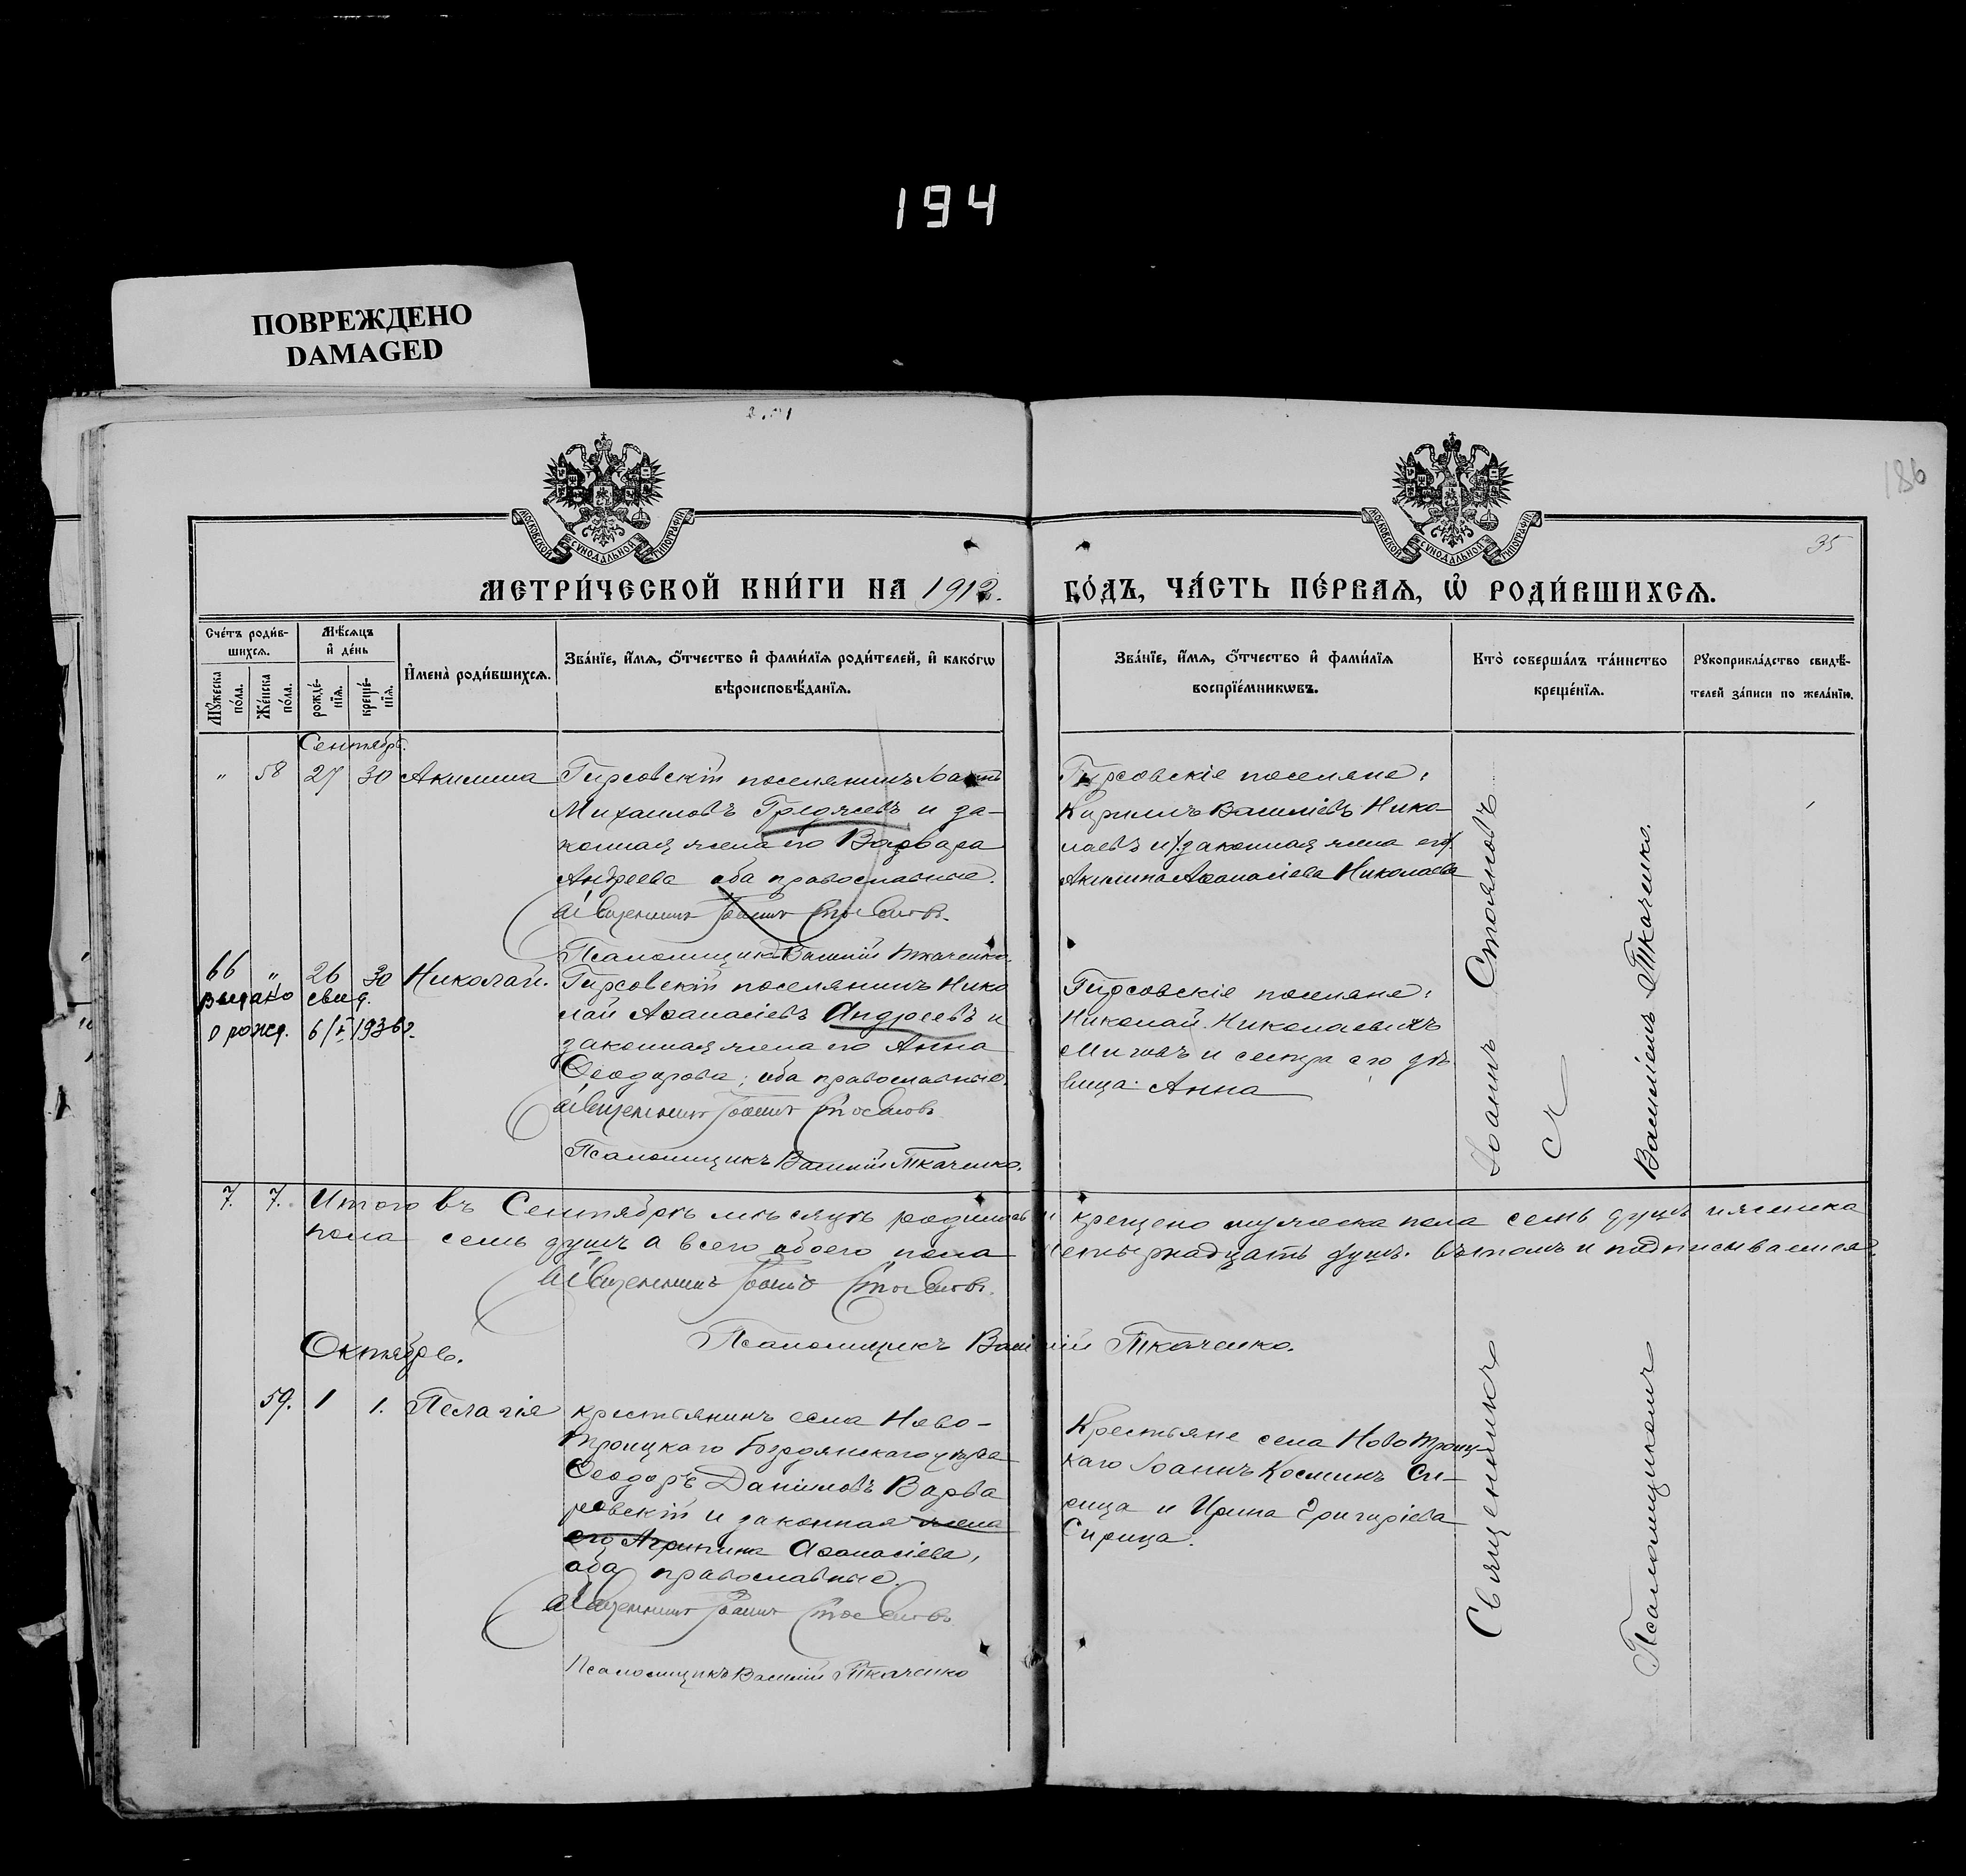 194
ПОВРЕЖДЕНО
DAMAGED
186
МОСКОВСКОЙ СѴНОДАЛЬНОЙ ТИПОГРАФІИ
МОСКОВСКОЙ СѴНОДАЛЬНОЙ ТИПОГРАФІИ
35
МЕТРИ́ЧЕСКОЙ КНИ́ГИ НА 1912. ГО́ДЪ, ЧА́СТЬ ПЕ́РВАѦ, Ѡ҆ РОДИ́ВШИХСѦ.
Сче́тъ роди́в-
шихсѧ.
Мѣ́сѧцъ
и҆ де́нь
Мꙋ́жеска
по́ла.
Же́нска
по́ла.
рожде́-
нїѧ.
креще́-
нїѧ.
И҆мена̀ роди́вшихсѧ.
Зва́нїе, и҆́мѧ, ѻ҆́тчество и҆ фами́лїѧ роди́телей, и҆ како́гѡ
вѣроисповѣ́данїѧ.
Зва́нїе, и҆́мѧ, ѻ҆́тчество и҆ фами́лїѧ
воспрїе́мникѡвъ.
Кто̀ соверша́лъ та́инство
креще́нїѧ.
Рꙋкоприкла́дство свидѣ́-
телей за́писи по жела́нїю.
Сентябрь.
" 58 27 30 Акилина
Гирсовскій поселянинъ Іоаннъ
Михаиловъ Гредячевъ и за-
конная жена его Варвара
Андреева оба православные.
Священникъ Іоаннъ Стояновъ.
Псаломщикъ Василій Ткаченко.
Гирсовскіе поселяне:
Кириллъ Василіевъ Нико-
лаевъ и законная жена его
Акилина Аѳанасіева Николаева
66 " 26 30 Николай.
выдано свид.
о рожд. 6/I 1936 г.
Гирсовскій поселянинъ Нико
лай Аѳанасіевъ Андреевъ и
законная жена его Анна
Ѳеодорова; оба православные.
Священникъ Іоаннъ Стояновъ
Псаломщикъ Василій Ткаченко.
Гирсовскіе поселяне:
Николай Николаевичъ
и сестра его дѣ
вица Анна
7. 7. Итого въ Сентябрѣ мѣсяцѣ родилось и крещено мужеска пола семь душъ и женска
пола семь душъ а всего обоего пола четырнадцать душъ. Въ томъ и подписываемся.
Священникъ Іоаннъ Стояновъ.
Псаломщикъ Василій Ткаченко.
Октябрь.
59. 1 1. Пелагія
крестьянинъ села Ново-
троицкаго Бердянскаго уѣзда
Ѳеодоръ Даніиловъ Варва
ровскій и законная жена
его Агрипина Аѳанасіева,
оба православные.
Священникъ Іоаннъ Стояновъ.
Псаломщикъ Василій Ткаченко
Крестьяне села Новотроиц-
каго Іоаннъ Косминъ Си-
рица и Ирина Григоріева
Сирица.
Священникъ Іоаннъ Стояновъ
съ
Псаломщикомъ Василіемъ Ткаченко.